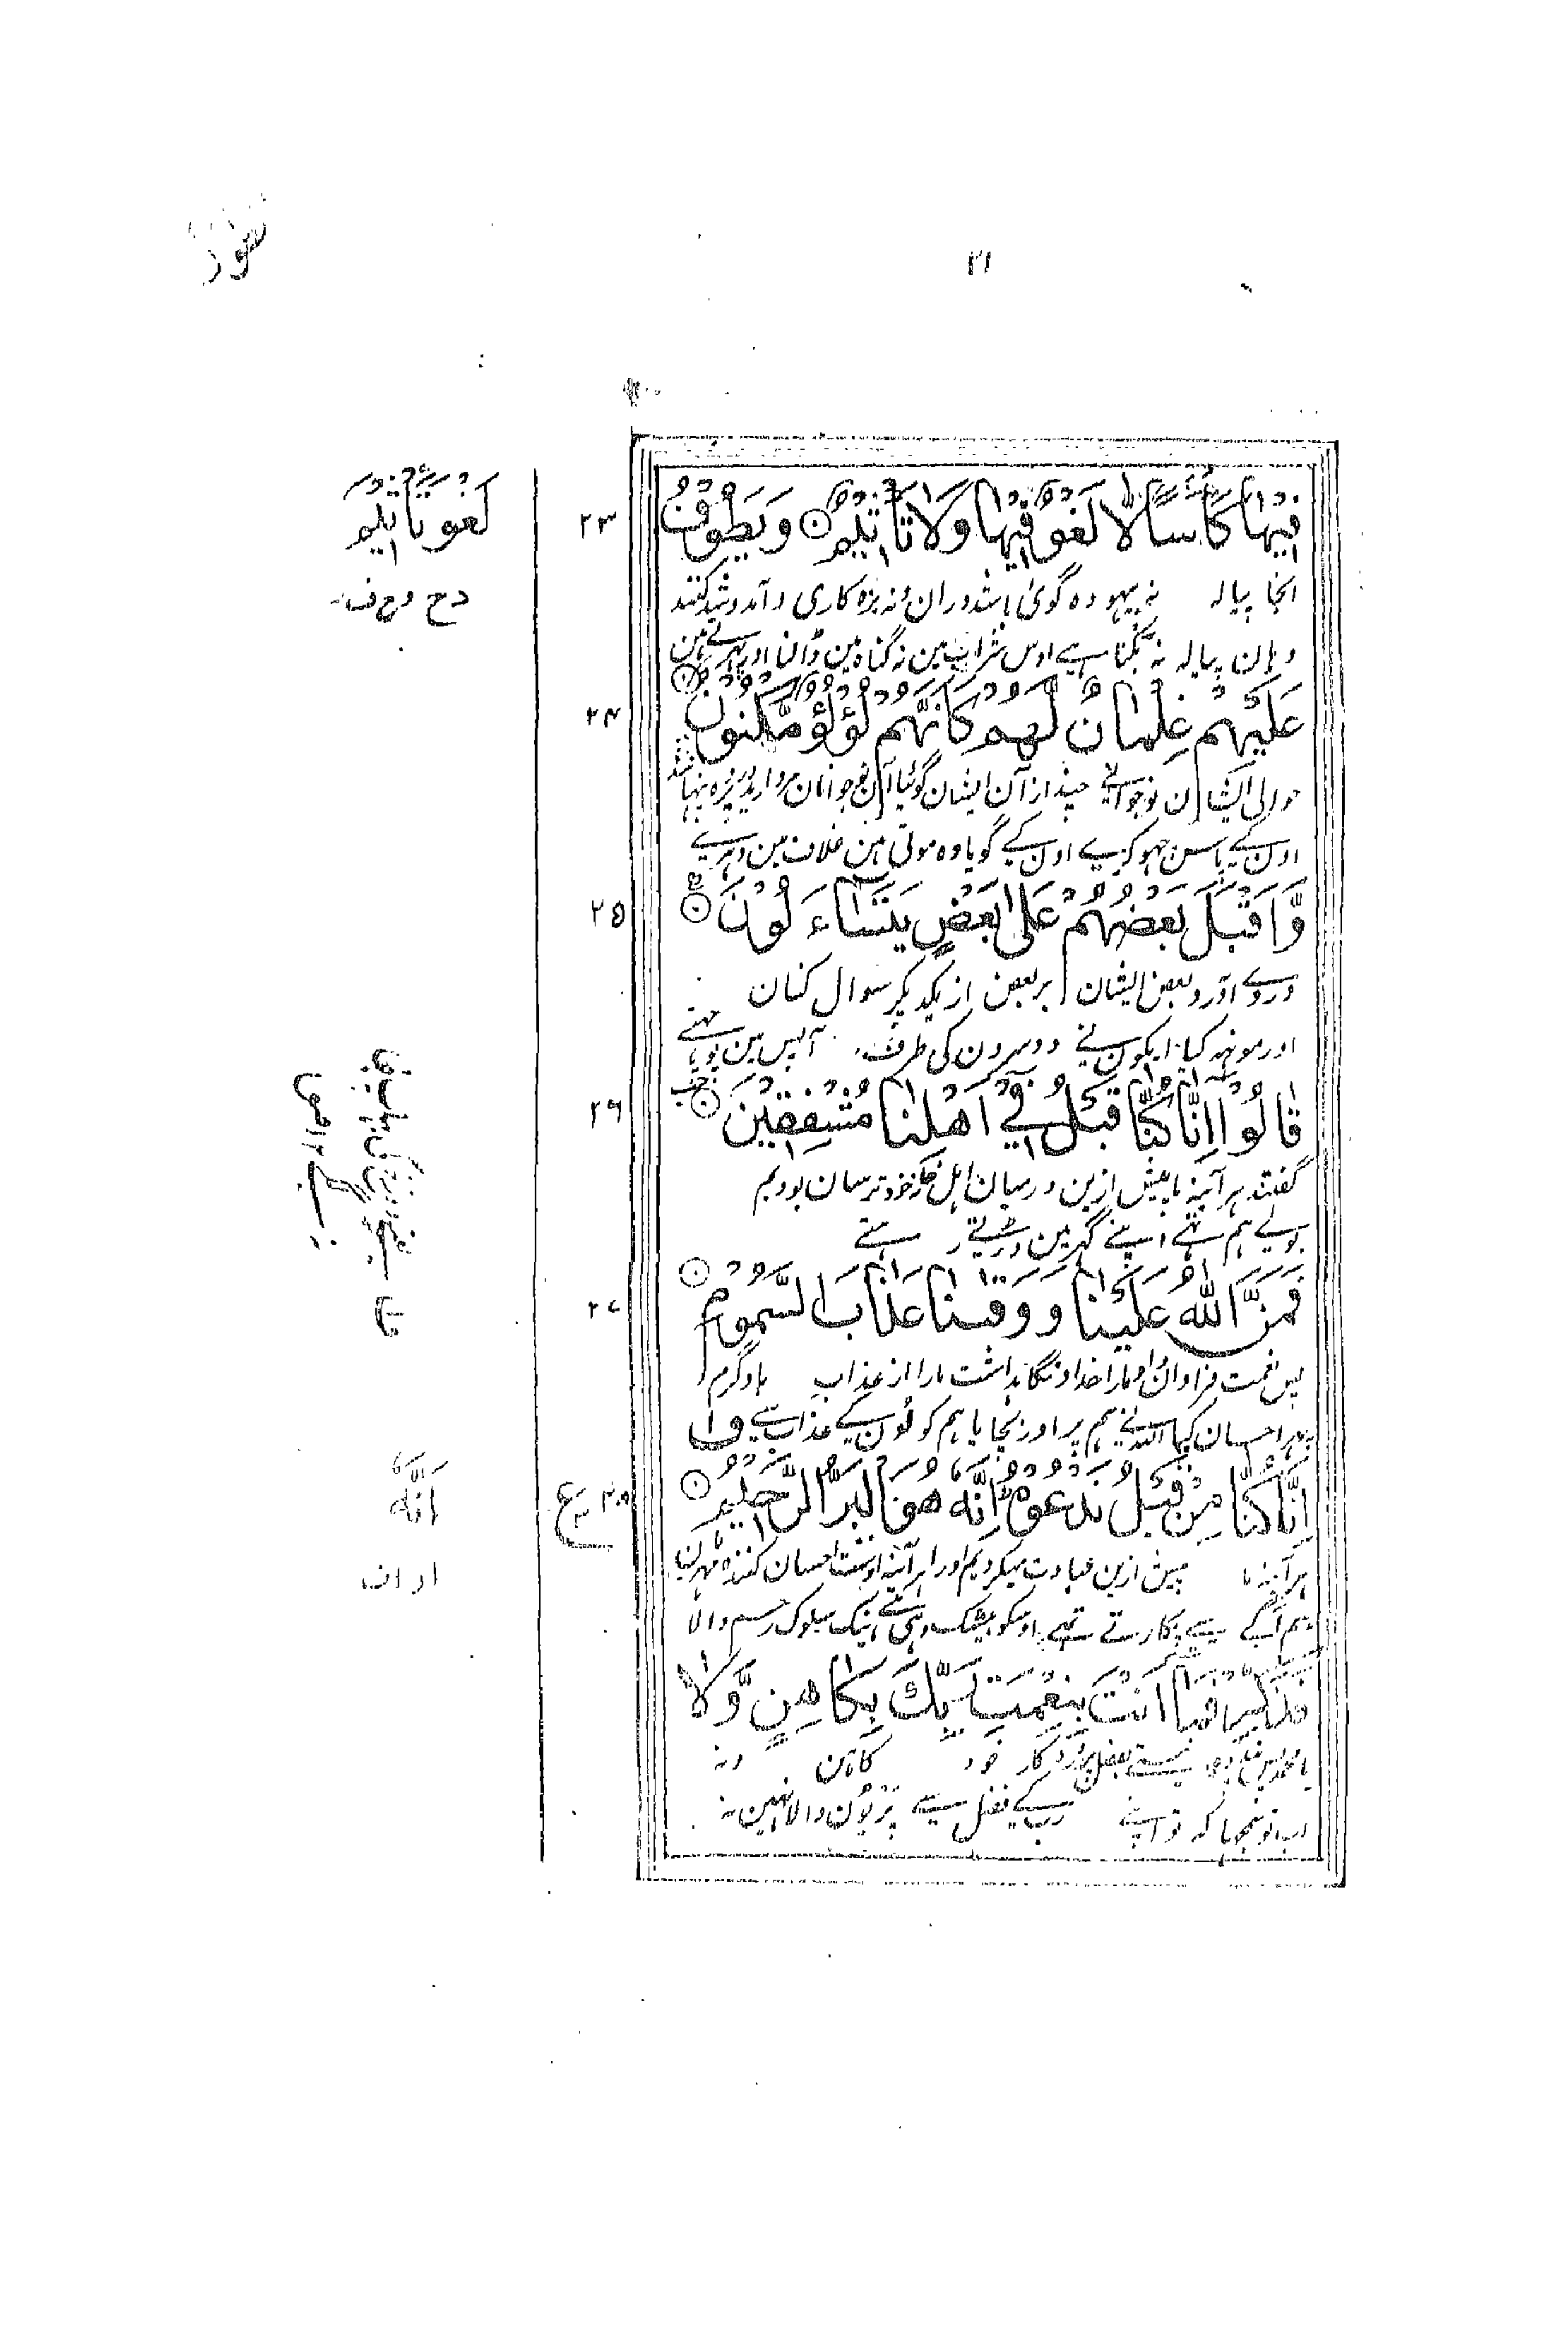 طور
۲۱
فِيْهَا كَأْسًا لَّا لَغْوٌ فِيْهَا وَلَا تَأْثِيْمٌ ۝ وَيَطُوْفُ
۲۳
انجا پیاله نه بیهوده گوئی باشد دران و نه بزه کاری و آمد و شد کنند
وہان پیاله نہ بکنا ہے اوس شراب مین نہ گناہ مین ڈالنا اور پہرتے ہین
عَلَيْهِمْ غِلْمَانٌ لَّهُمْ كَاَنَّهُمْ لُؤْلُؤٌ مَّكْنُوْنٌ ۝
۲۴
حوالی ایشان نوجوانے چند از آن ایشان گوئیا آن نوجوانان مروارید در پرده
اون کے پاس چہوکرے اون کے گویا وہ موتی ہین غلاف مین دہرے
وَاَقْبَلَ بَعْضُهُمْ عَلٰى بَعْضٍ يَّتَسَآءَلُوْنَ ۝
۲۵
و روے آورد بعض ایشان بر بعض از یکدیگر سوال کنان
اور مونہہ کیا ایکون نے دوسرون کی طرف آپس مین
قَالُوْٓا اِنَّا كُنَّا قَبْلُ فِيْٓ اَهْلِنَا مُشْفِقِيْنَ ۝
۲۶
گفتند هر آئینه ما پیش ازین درمیان اهل خود ترسان بودیم
بولے ہم تہے اپنے گہر مین ڈرتے رہتے
فَمَنَّ اللّٰهُ عَلَيْنَا وَوَقٰىنَا عَذَابَ السَّمُوْمِ ۝
۲۷
پس نعمت فراوان داد مارا خدا و نگاہداشت مارا از عذاب باد گرم
پہر احسان کیا اللہ نے ہم پر اور بچایا ہم کو لون کے عذاب سے ف۱
اِنَّا كُنَّا مِنْ قَبْلُ نَدْعُوْهُ ؕ اِنَّهٗ هُوَ الْبَرُّ الرَّحِيْمُ ۝
۲۸ ع
هر آئینه ما پیش ازین عبادت میکردیم اورا هر آئینه اوست احسان کننده مهربان
ہم آگے سے پکارتے تہے اوسکو بیشک وہی ہے نیک سلوک رحم والا
فَذَكِّرْ فَمَآ اَنْتَ بِنِعْمَتِ رَبِّكَ بِكَاهِنٍ وَّلَا
نیستی بفضل پروردگار خود کاهن و نه
اب تو سمجہا کہ تو اپنے رب کے فضل سے پریون والا نہین نہ
لَغْوَ تَأْثِيْمَ
دح وح ف
ف۱
اَنَّهٗ
ار اف